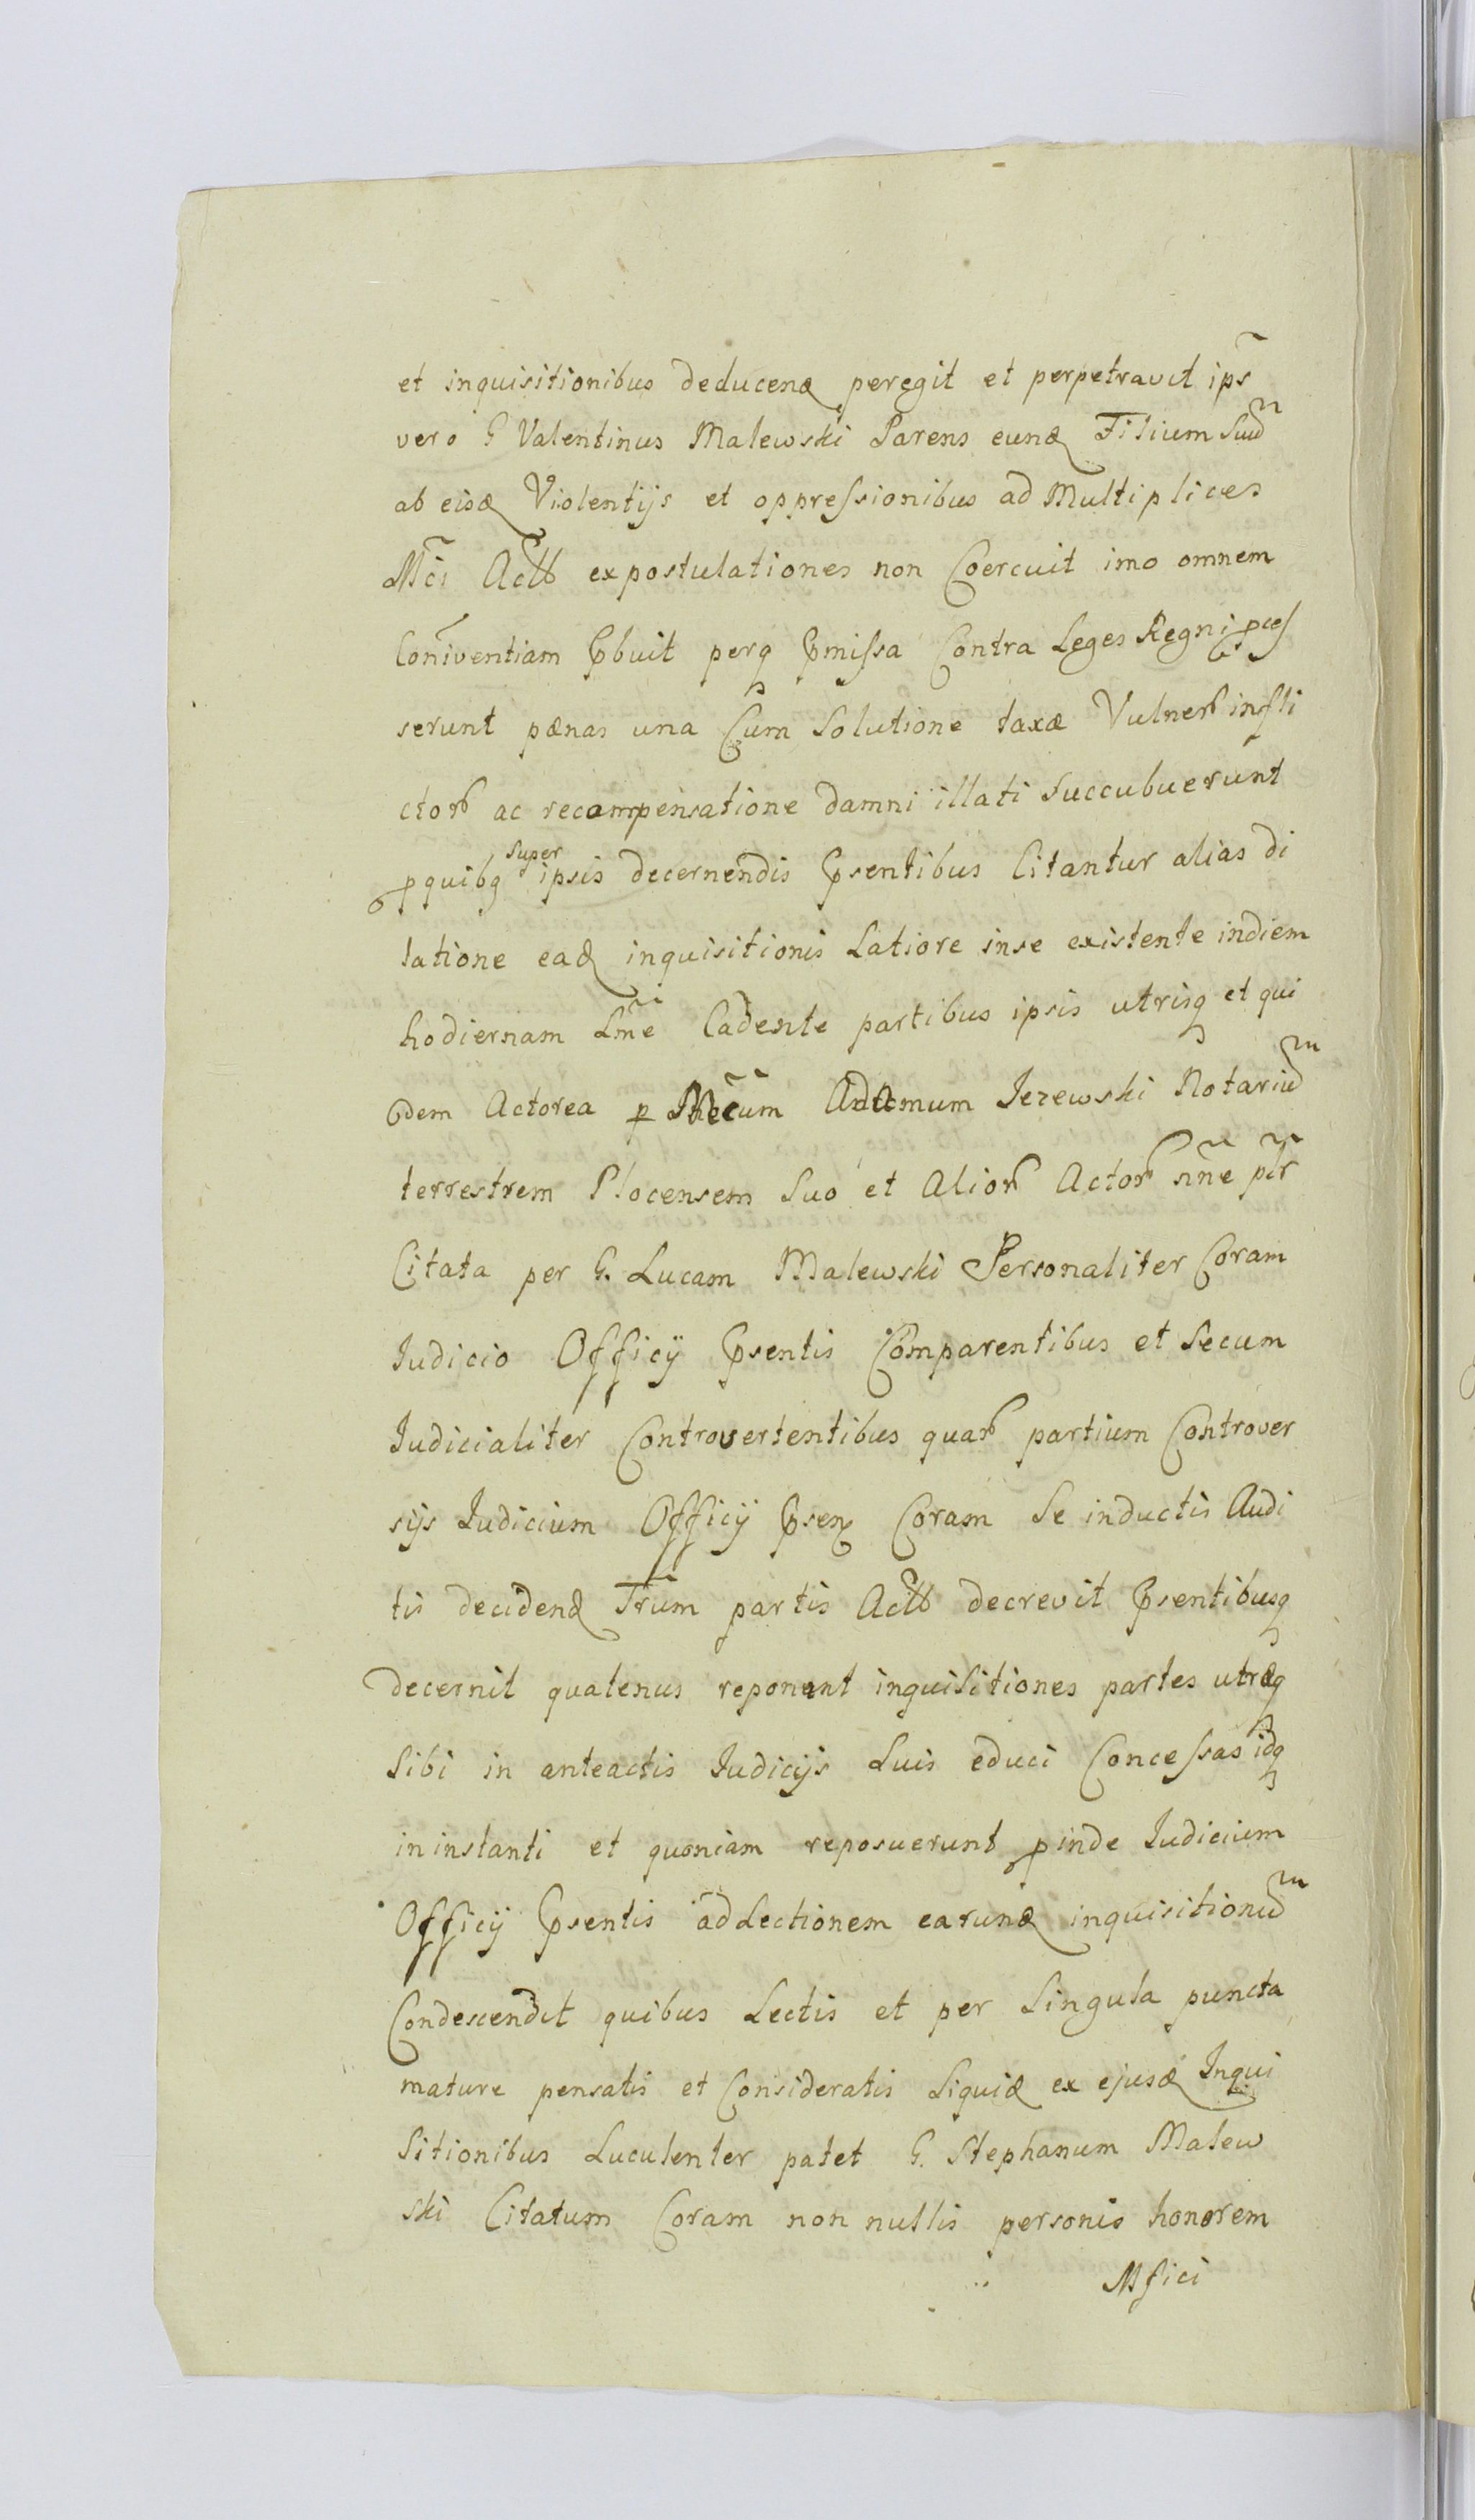 et inquisitionibus deducend peregit et perpetravit ips
vero G Valentinus Malewski Parens eund Filium Suũ
ab eisd Violentijs et oppressionibus ad Multiplices
Mci Actb expostulationes non Coercuit imo omnem
Coniventiam pbuit perq pmissa Contra Leges Regni pces
serunt pænas una Cum Solutione taxæ Vulner infli
ctor ac recompensatione damni illati Succubuerunt
pquibq super ipsis decernendis psentibus Citantur alias di
latione ead inquisitionis Latiore inse existente indiem
hodiernam Lme Cadente partibus ipsis utrisq et qui
dem Actorea p Mcum Adamum Jezewski Notariũ
terrestrem Plocensem Suo et Alior Actor nne ptr
Citata per G. Lucam Malewski Personaliter Coram
Judicio Officij psentis Comparentibus et Secum
Judicialiter Controvertentibus quar partium Controver
sijs Judicium Officij psens Coram Se inductis Audi
tis decidend Trum partis Actb decrevit psentibusq
decernit quatenus reponant inquisitiones partes utræq
Sibi in anteactis Judicijs Luis educi Concessas idq
in instanti et quoniam reposuerunt pinde Judicium
Officij psentis ad Lectionem earund inquisitionũ
Condescendit quibus Lectis et per Singula puncta
mature pensatis et Consideratis Siquid ex ejusd Inqui
Sitionibus Luculenter patet G. Stephanum Malew
ski Citatum Coram non nullis personis honorem
Mfici